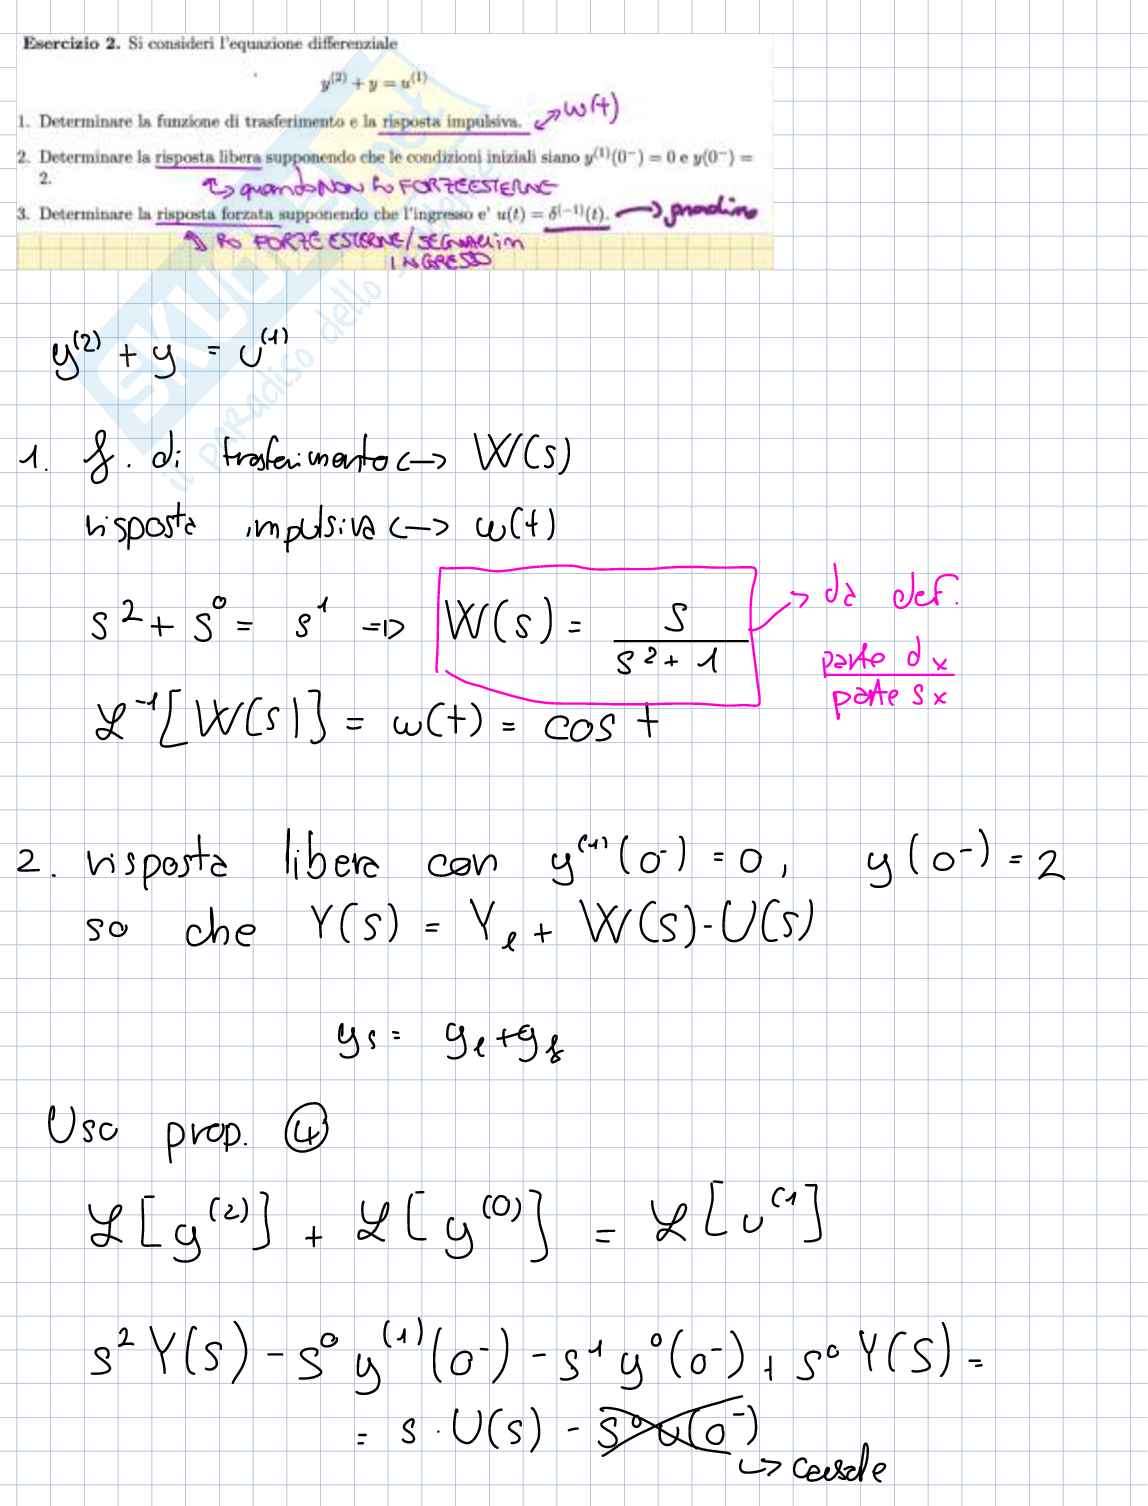 Esercizio 2. Si consideri l'equazione differenziale
y⁽²⁾ + y = u⁽¹⁾
1. Determinare la funzione di trasferimento e la risposta impulsiva. w(t)
2. Determinare la risposta libera supponendo che le condizioni iniziali siano y⁽¹⁾(0⁻) = 0 e y(0⁻) =
2.
↳ quando NON ho FORZE ESTERNE
3. Determinare la risposta forzata supponendo che l'ingresso e' u(t) = δ⁽⁻¹⁾(t). → gradino
ho FORZE ESTERNE/SEGNALI in
INGRESSO
SKUOLA.net
il paradiso dello studente
y⁽²⁾ + y = u⁽¹⁾
1. f. di trasferimento ↔ W(s)
risposta impulsiva ↔ w(t)
s² + s⁰ = s¹ ⇒ W(s) = s / (s² + 1) → da def.
parte dx / parte sx
ℒ⁻¹[W(s)] = w(t) = cos t
2. risposta libera con y⁽¹⁾(0⁻) = 0, y(0⁻) = 2
so che Y(s) = Yℓ + W(s)·U(s)
ys = yℓ + yf
Uso prop. ④
ℒ[y⁽²⁾] + ℒ[y⁽⁰⁾] = ℒ[u⁽¹]
s² Y(s) - s⁰ y⁽¹⁾(0⁻) - s¹ y⁰(0⁻) + s⁰ Y(s) =
= s · U(s) - s⁰u(0⁻)
↳ causale